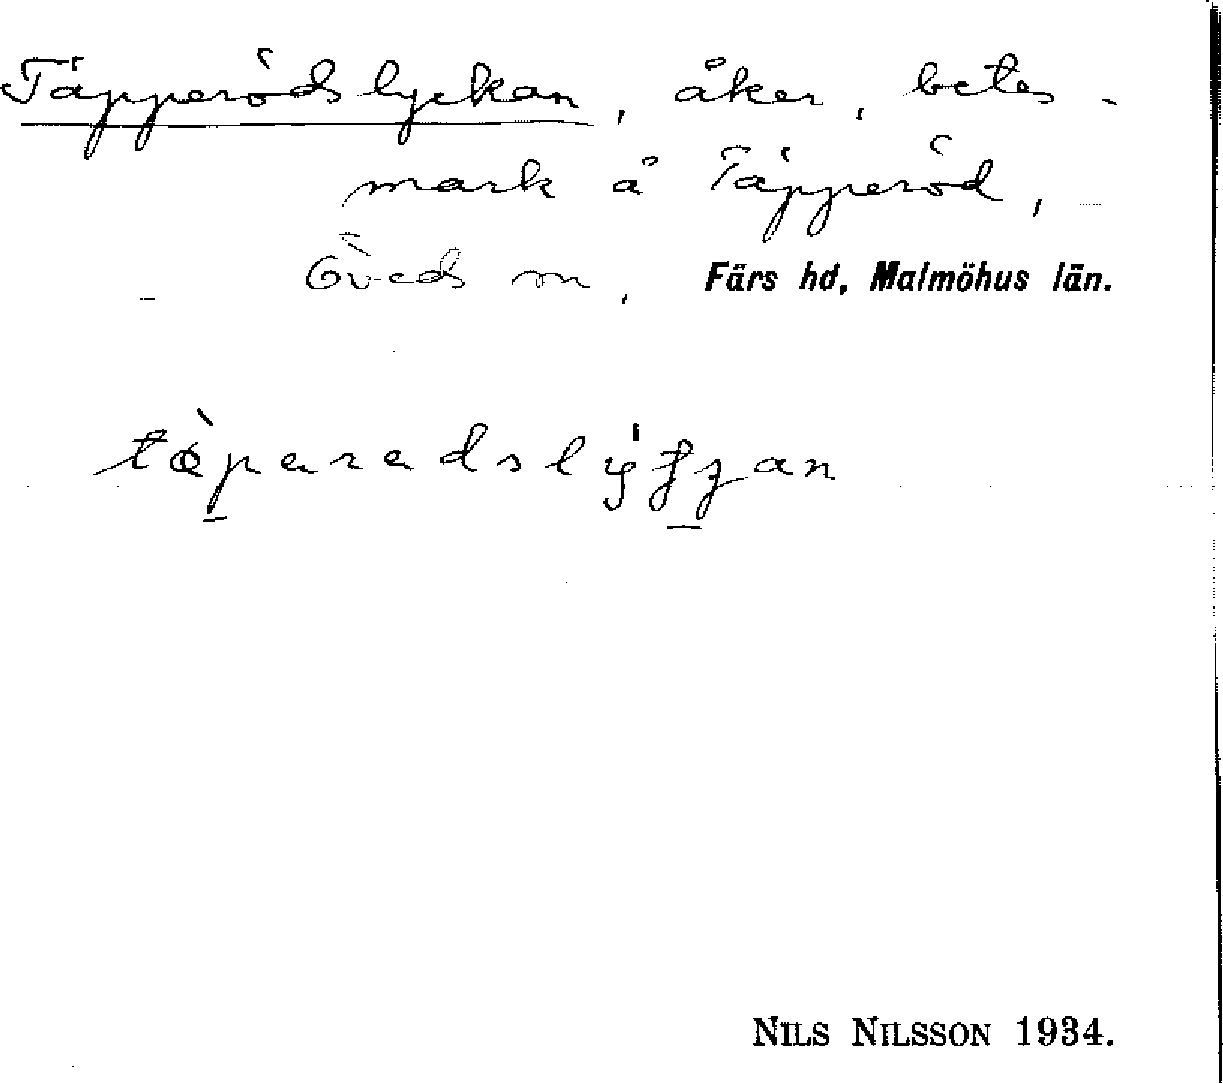 Täpperödslyckan, åker, betes-
mark å Täpperöd,
Öveds sn, Färs hd, Malmöhus län.
NILS NILSSON 1934.